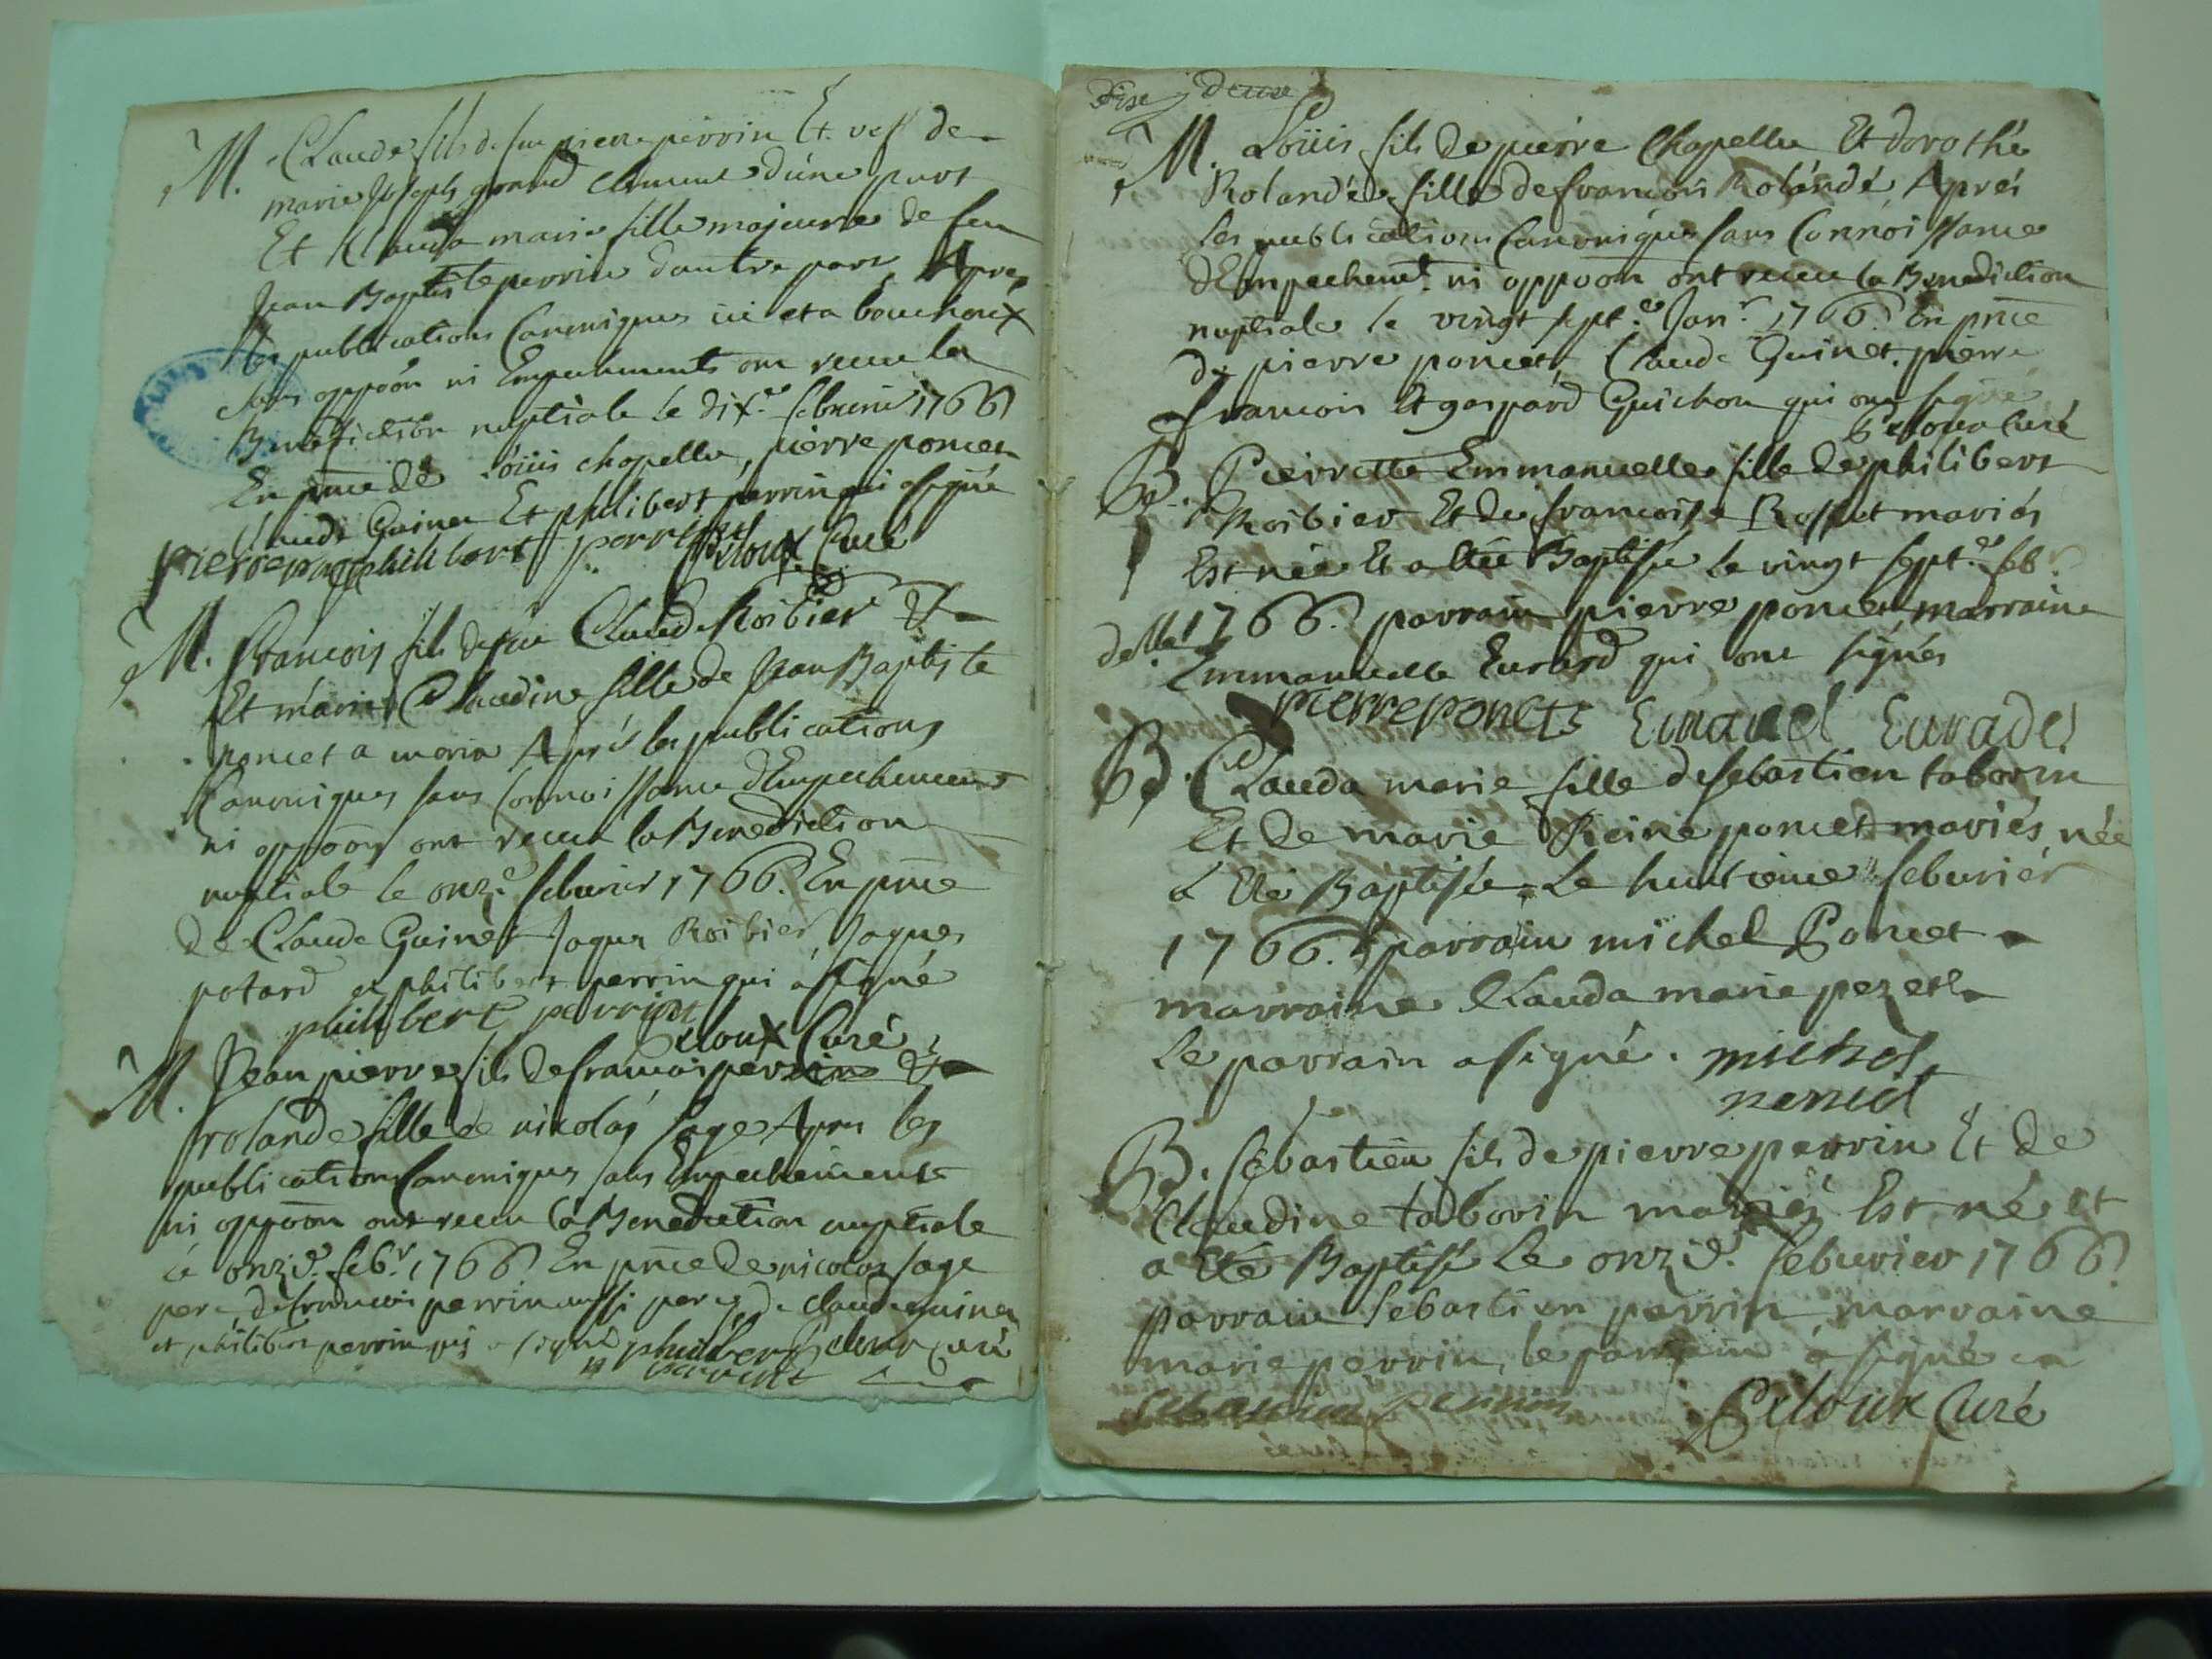 M. Claude fils de feu pierre perrin Et vef de
marie Joseph grand clement d'une part
Et Clauda marie fille majeure de feu
Jean Baptiste perrin dautre part Apres
les publications Canoniques ici et a bouchoux
sans oppoôn ni Empechements ont receu la
Benediction nuptiale le dix.e febvrier 1766
En pnce de Loüis chapelle, pierre poncet
Claude Guinet Et philibert perrin qui a signé
pierre philibert perrin Peloux Curé
M. francois fils de feu Claude Roibier Et
Et marie Claudine fille de Jean Baptiste
poncet a Aprés les publications
Canoniques sans Connoissance d'Empechement
ni oppoôn ont receu la Benediction
nuptiale le onz.e feburier 1766. En pnce
de Claude Guinet Jaques Roibier Jaques
potard et philibert perrin qui a signé
philibert perrin
Peloux Curé
M. Jean pierre fils de francois perrin Et
rolande fille de nicolas sage Apres les
publications Canoniques sans Empechements
ni oppoôn ont receu la Benediction nuptiale
le onzi.e feb.r 1766 En pnce de nicolas sage
pere de francois perrin aussi pere de claude guinet
et philibert perrin qui a signé philibert Peloux curé
perrin
M. Loüis fils de pierre Chapelle Et dorothé
Rolandé fille de francois Rolandé Aprés
les publications Canoniques sans Connoissance
d'Empechemt. ni oppoôn ont receu la Benediction
nuptiale le vingt sept.e Janr. 1766. En pnce
de pierre poncet, Claude Guinet, pierre
francois Et gaspard Guichon qui ont signé
Peloux Curé
B. Pierrette Emmanuelle fille de philibert
Roibier Et de francoise Rosset mariés
Est née Et a Eté Baptisée le vingt sept.e
1766. parrain pierre poncet marraine
delle
Emmanuelle Eurard qui ont signés
pierre poncets Emanuel Eurade
B. Clauda marie fille de sebastien taborin
Et de marie Reine poncet mariés, née
a Eté Baptisée Le huitieme feburier
1766. parrain michel Poncet
marraine Clauda marie pezet
Le parrain a signé. michel
poncet
B. sebastien fils de pierre perrin Et de
Claudine taborin mariés Est né et
a Eté Baptisé Le onzi.e feburier 1766
parrain sebastien perrin marraine
marie perrin, le parrain a signé
sebastien perrin Peloux Curé